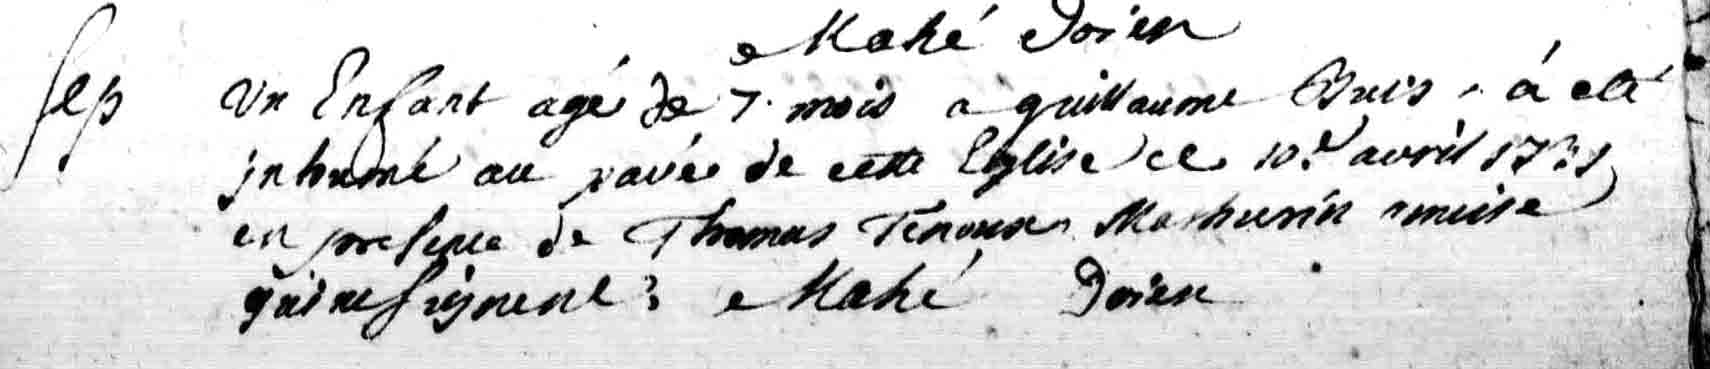 Mahé Doien
Sep Un Enfant agé de 7 mois a guillaume Buis a eté
inhumé au pavée de cette Eglise ce 10.e avril 1731
en presence de Thomas Tenoux Mathurin
qui ne signent Mahé Doien